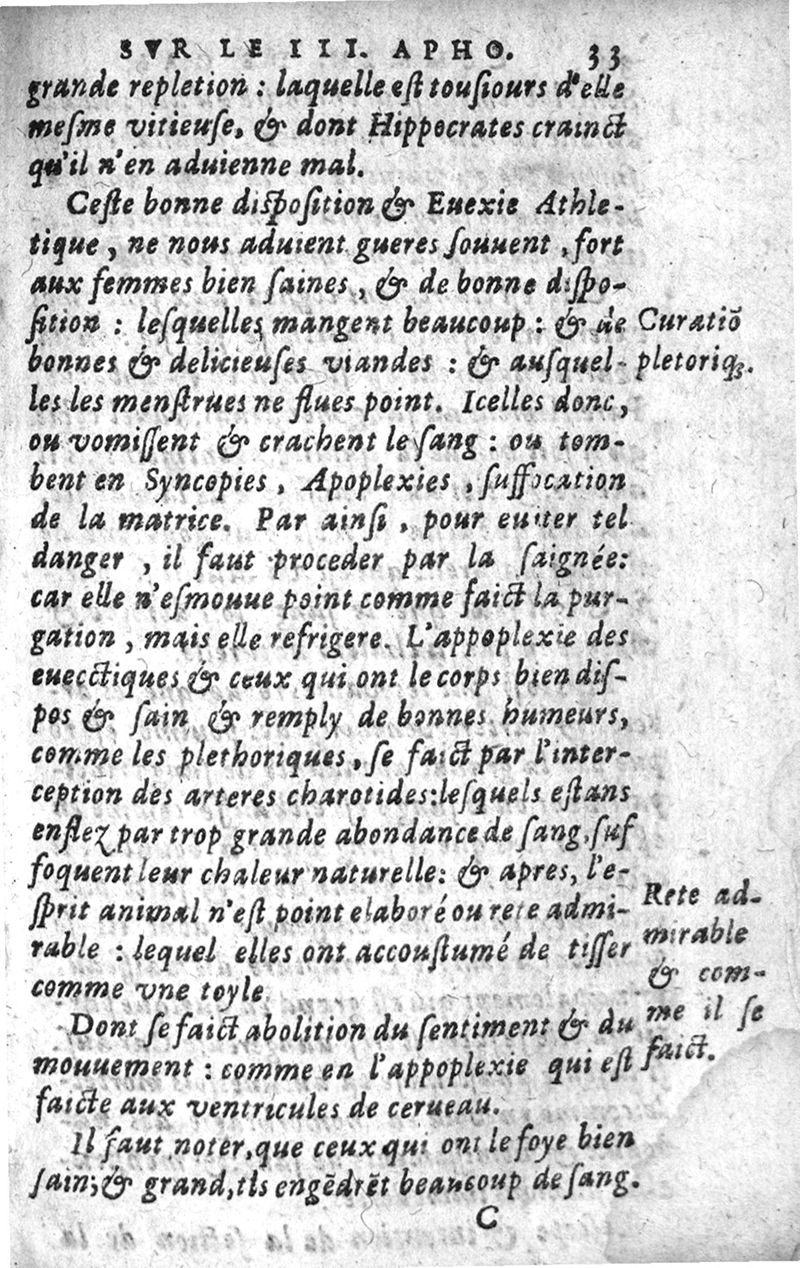 SVR LE III. APHO. 33
grande repletion : laquelle est tousiours d'elle
mesme vitieuse, & dont Hippocrates crainct
qu'il n'en aduienne mal.
Ceste bonne disposition & Euexie Athle-
tique, ne nous aduient gueres souuent, fort
aux femmes bien saines, & de bonne dispo-
sition : lesquelles mangent beaucoup : & de
bonnes & delicieuses viandes : & ausquel-
les les menstrues ne flues point. Icelles donc,
ou vomissent & crachent le sang : ou tom-
bent en Syncopies, Apoplexies, suffocation
de la matrice. Par ainsi, pour euiter tel
danger, il faut proceder par la saignée:
car elle n'esmouue point comme faict la pur-
gation, mais elle refrigere. L'appoplexie des
euecctiques & ceux qui ont le corps bien dis-
pos & sain & remply de bonnes humeurs,
comme les plethoriques, se faict par l'inter-
ception des arteres charotides: lesquels estans
enflez par trop grande abondance de sang, suf
foquent leur chaleur naturelle: & apres, l'e-
sprit animal n'est point elaboré ou rete admi-
rable : lequel elles ont accoustumé de tisser
comme vne toyle
Dont se faict abolition du sentiment & du
mouuement : comme en l'appoplexie qui est
faicte aux ventricules de cerueau.
Il faut noter, que ceux qui ont le foye bien
sain, & grand, ils engēdrēt beaucoup de sang.
C
Curatiō
pletoriqȝ.
Rete ad-
mirable
& com-
me il se
faict.